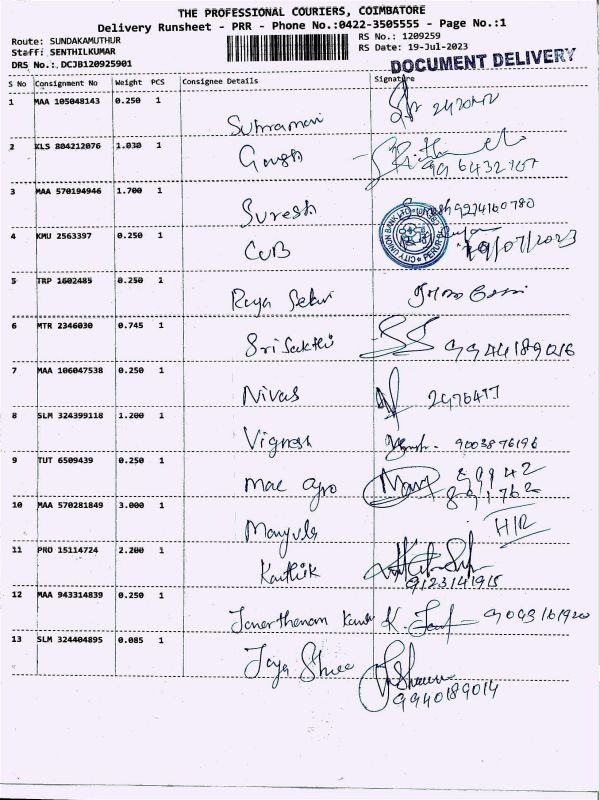 THE PROFESSIONAL COURIERS, COIMBATORE
Delivery Runsheet - PRR - Phone No.:0422-3505555 - Page No.:1
Route: SUNDAKAMUTHUR RS No.: 1209259
Staff: SENTHILKUMAR RS Date: 19-Jul-2023
DRS No.:.DCJB120925901 DOCUMENT DELIVERY
S No Consignment No Weight PCS Consignee Details Signature
1 MAA 105048143 0.250 1
2 KLS 804212076 1.030 1 Gough
3 MAA 570194946 1.700 1 Suresh
4 KMU 2563397 0.250 1 CUB CITY UNION BANK LTD 19/07/2023
5 TRP 1602485 0.250 1
6 MTR 2346030 0.745 1 Sri Sakthi
7 MAA 106047538 0.250 1 Nivas
8 SLM 324399118 1.200 1 Vignesh 9003876196
9 TUT 6509439 0.250 1 Mac Agro
10 MAA 570281849 3.000 1 Manjula
11 PRO 15114724 2.200 1 Karthik 9123141915
12 MAA 943314839 0.250 1
13 SLM 324404895 0.085 1 Jaya Shree 9940189014